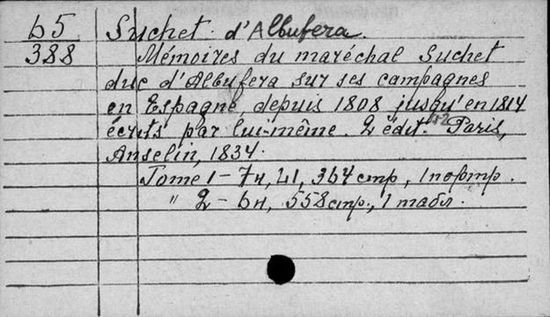 b5 Suchet d'Albufera.
388 Mémoires du maréchal Suchet
duc d'Albufera sur ses campagnes
en Espagne depuis 1808 jusqu'en 1814
écrits par lui-même. 2 édit. Paris,
Anselin, 1834.
Tome 1 – 7н, LI, 364 стр, 1 портр.
" 2 – bн, 558 стр, 1 табл.